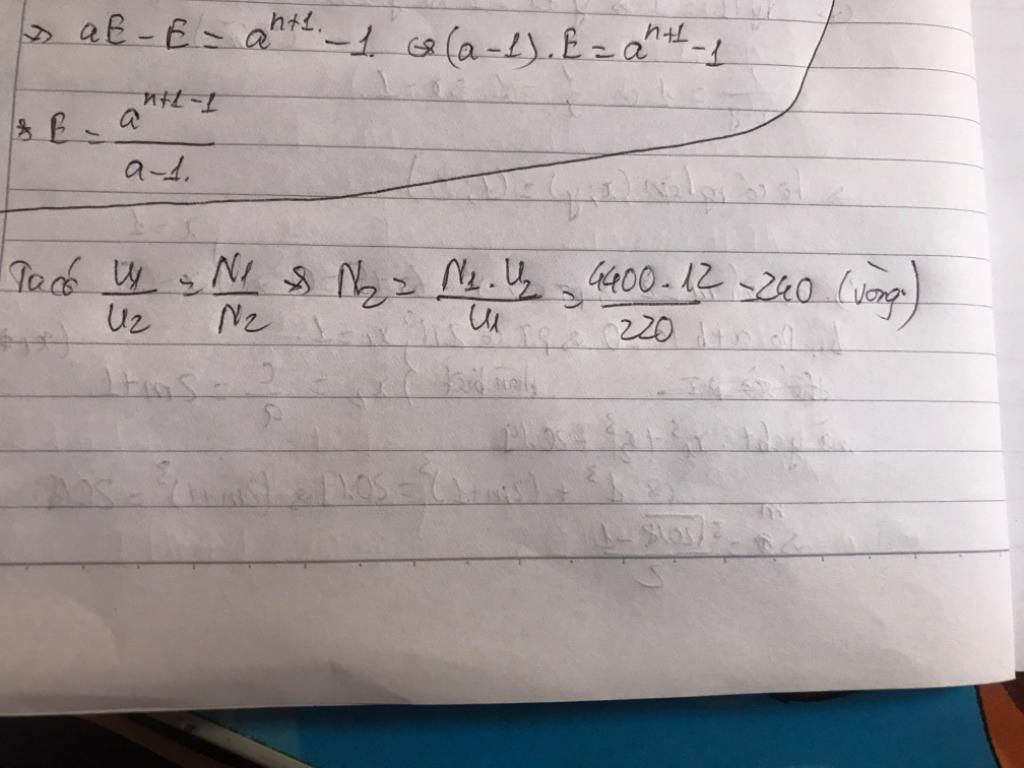 => aE - E = a^{n+1} - 1 <=> (a-1).E = a^{n+1} - 1
<=> E = \frac{a^{n+1-1}}{a-1}.
Ta có \frac{U1}{U2} = \frac{N1}{N2} <=> N2 = \frac{N1.U2}{U1} = \frac{4400.12}{220} = 240 (vòng)